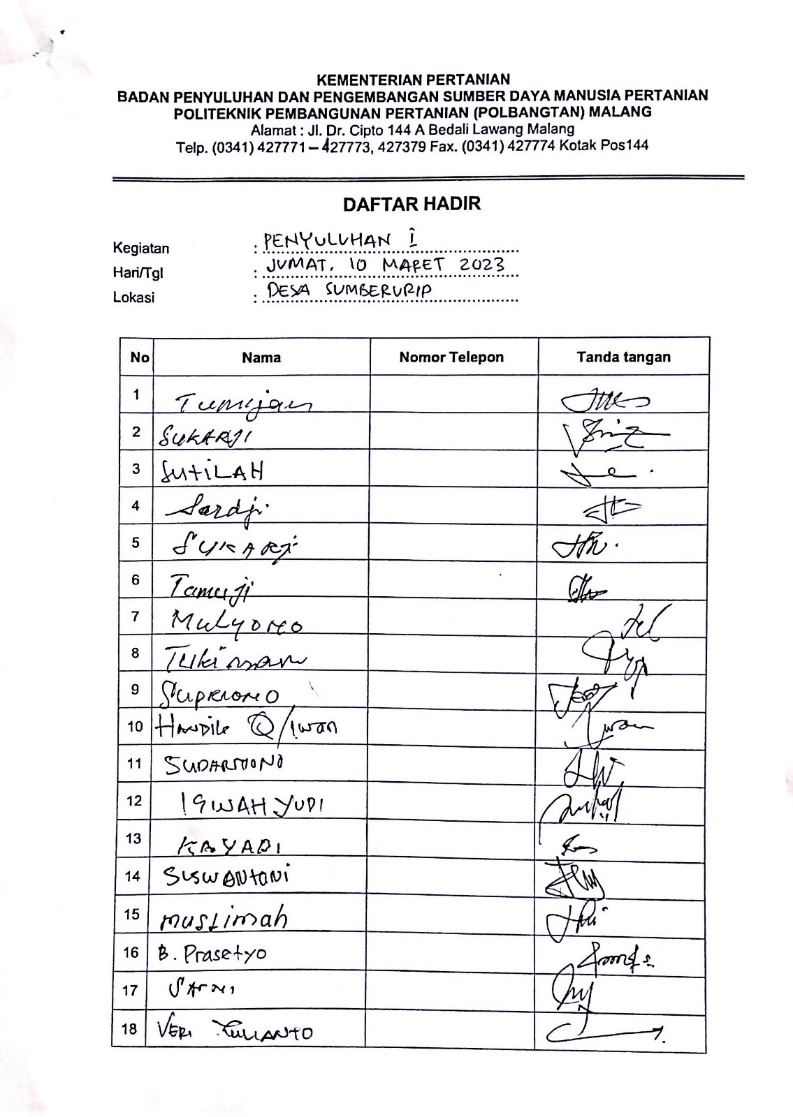 KEMENTERIAN PERTANIAN
BADAN PENYULUHAN DAN PENGEMBANGAN SUMBER DAYA MANUSIA PERTANIAN
POLITEKNIK PEMBANGUNAN PERTANIAN (POLBANGTAN) MALANG
Alamat : Jl. Dr. Cipto 144 A Bedali Lawang Malang
Telp. (0341) 427771 – 427773, 427379 Fax. (0341) 427774 Kotak Pos144
DAFTAR HADIR
Kegiatan : PENYULUHAN I
Hari/Tgl : JUMAT, 10 MARET 2023
Lokasi : DESA SUMBERURIP
No Nama Nomor Telepon Tanda tangan
1 Tumijan
2 SUKARJI
3 SUTILAH
4 Sardji
5 SUKARJI
6 Tamuji
7 Mulyono
8 Tukiman
9 SUPRIONO
10 HANDILE Q/Iwan Iwan
11 SUDARMONO
12 ISWAHYUDI
13 KAYADI
14 SUSWANTONI
15 musLimah
16 B. Prasetyo
17 SARNI
18 VERI YULIANTO